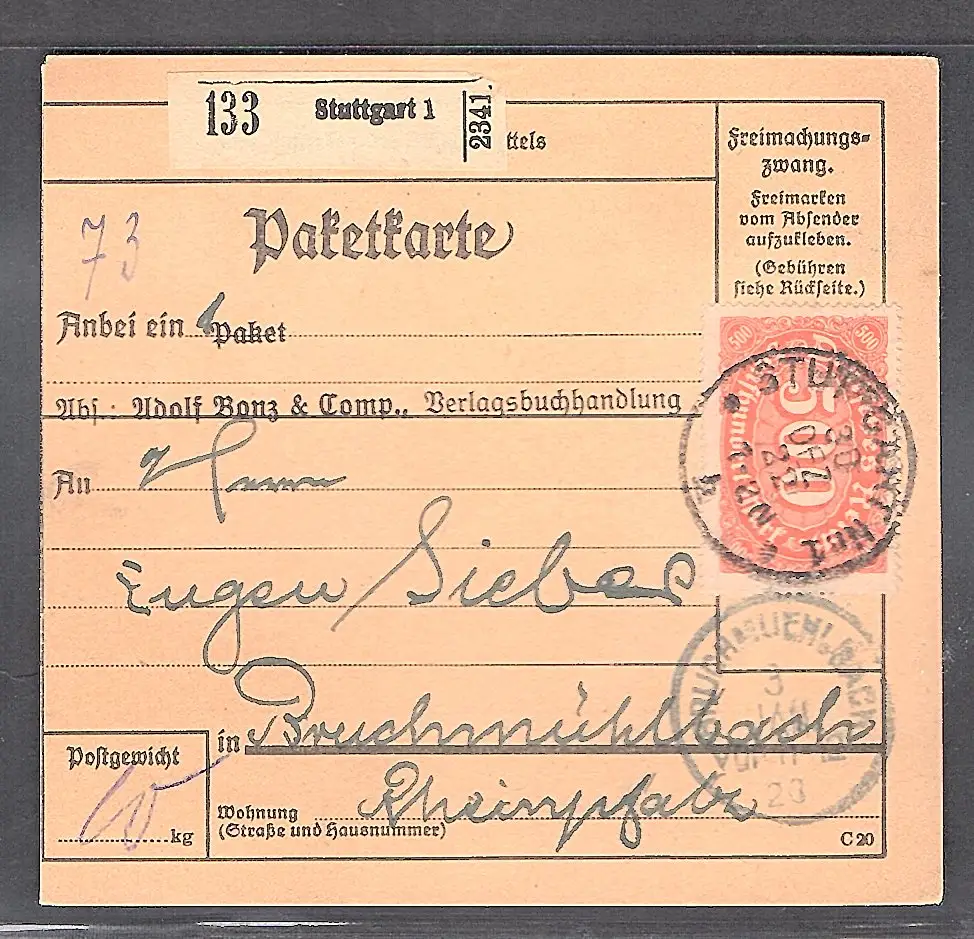 133 Stuttgart 1 2341.
ttels
Freimachungs=
zwang.
Freimarken
vom Absender
aufzukleben.
(Gebühren
siehe Rückseite.)
73
Paketkarte
Anbei ein Paket
500 500
500
STUTTGART No 1
30
DEZ
22
1-2 N
h
Abs.: Adolf Bonz & Comp., Verlagsbuchhandlung
An Herrn
Eugen Sieber
in Bruchmühlbach
Rheinpfalz
BRUCHMUEHLBACH
3
JAN
23
Postgewicht
10 kg
Wohnung
(Straße und Hausnummer)
C 20